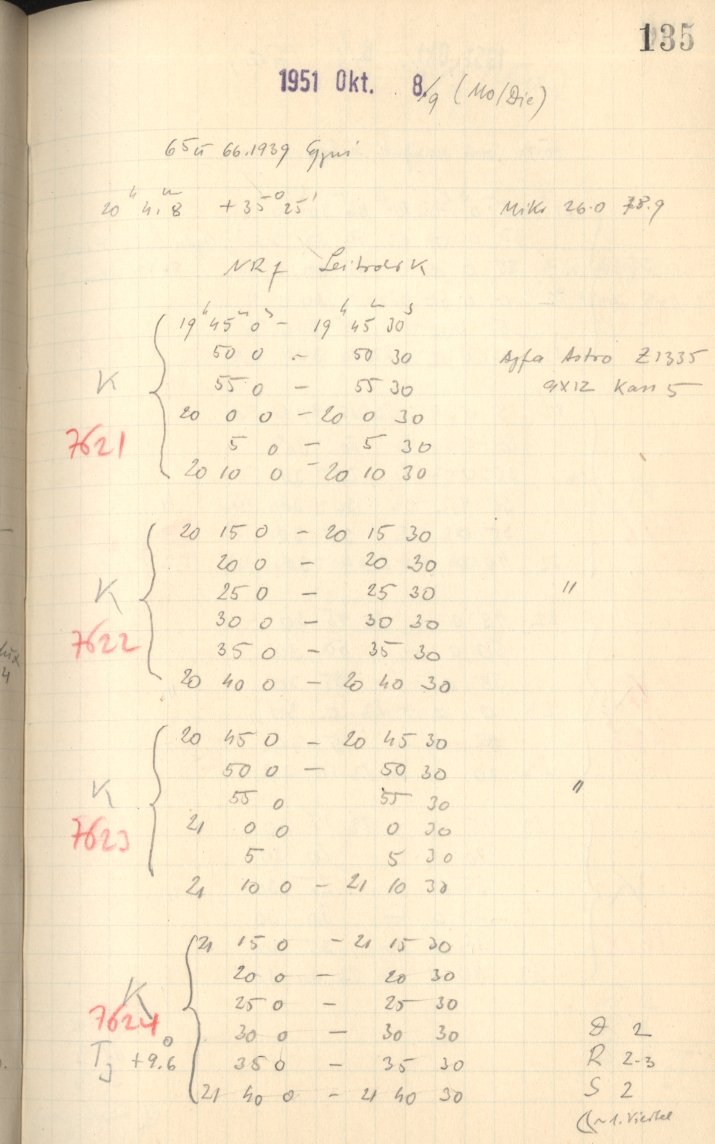 135
1951 Okt. 8./9 (Mo/Die)
65 u 66.1939 Cygni
20ʰ 4ᵐ.8 +35° 25' Mikr 26.0 78.9
NRf K
19ʰ 45ᵐ 0ˢ – 19ʰ 45ᵐ 30ˢ
50 0 – 50 30 Agfa Astro Z1335
K 55 0 – 55 30 9x12 Kass 5
20 0 0 – 20 0 30
7621 5 0 – 5 30
20 10 0 – 20 10 30
20 15 0 – 20 15 30
20 0 – 20 30
K 25 0 – 25 30 "
30 0 – 30 30
7622 35 0 – 35 30
20 40 0 – 20 40 30
20 45 0 – 20 45 30
50 0 – 50 30
K 55 0 55 30 "
21 0 0 0 30
7623 5 5 30
21 10 0 – 21 10 30
21 15 0 – 21 15 30
20 0 – 20 30
K 25 0 – 25 30
7624 30 0 – 30 30 D 2
TJ +9.6° 35 0 – 35 30 R 2-3
21 40 0 – 21 40 30 S 2
(~1. Viertel